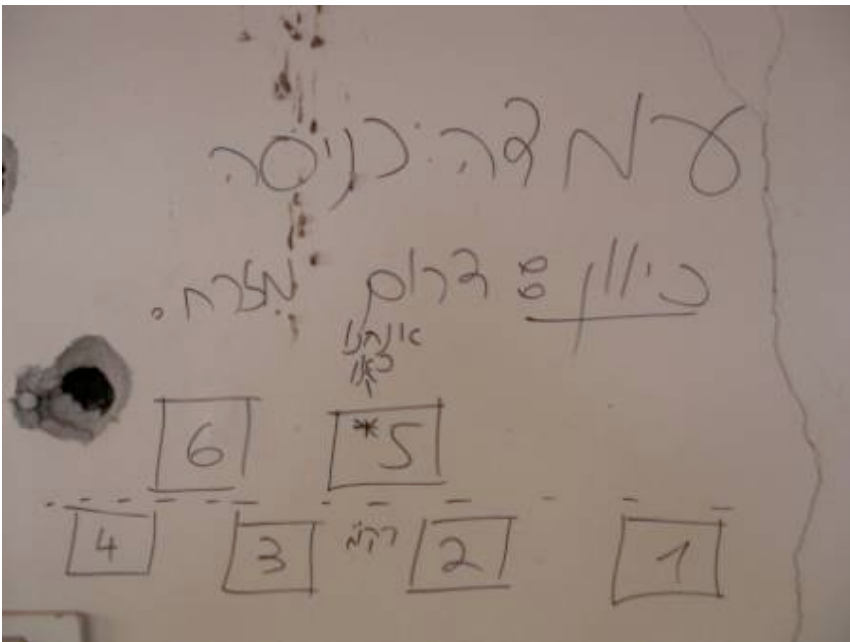 עמדה: כניסה
כיוון: דרום מזרח.
אנחנו
כאן
6 *5
4 3 2 1